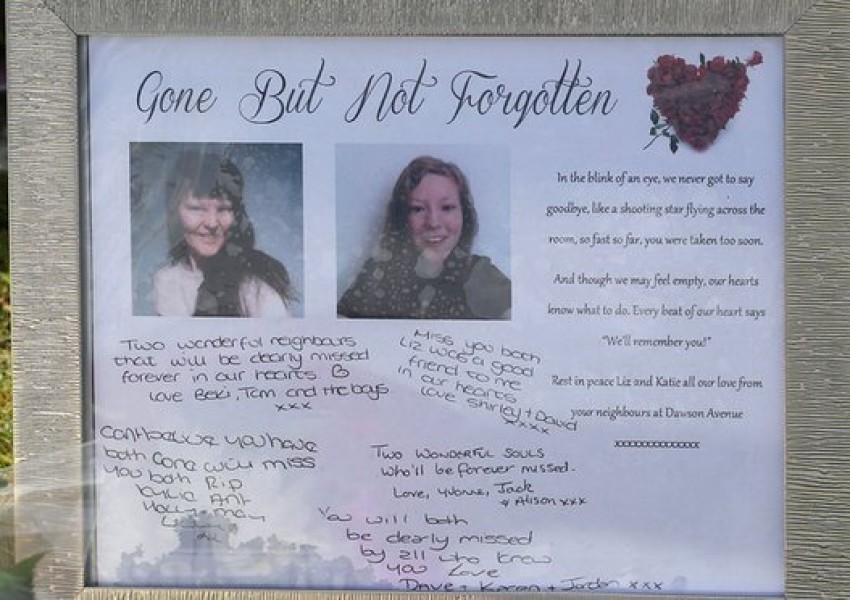 Gone But Not Forgotten
In the blink of an eye, we never got to say
goodbye, like a shooting star flying across the
room, so fast so far, you were taken too soon.
And though we may feel empty, our hearts
know what to do. Every beat of our heart says
"We'll remember you!"
Rest in peace Liz and Katie all our love from
your neighbours at Dawson Avenue
xxxxxxxxxxxxxxx
Two wonderful neighbours
that will be dearly missed
forever in our hearts
love Beki, Tom and the boys
xxx
Miss you both
Liz was a good
friend to me
in our hearts
love Shirley + David
xxxx
Cant believe you have
both Gone will miss
you both RIP
Ant
Two Wonderful souls
who'll be forever missed.
Love, Yvonne, Jack
& Alison xxx
You will both
be dearly missed
by all who knew
you Love
Dave + Karen + Jordan xxx